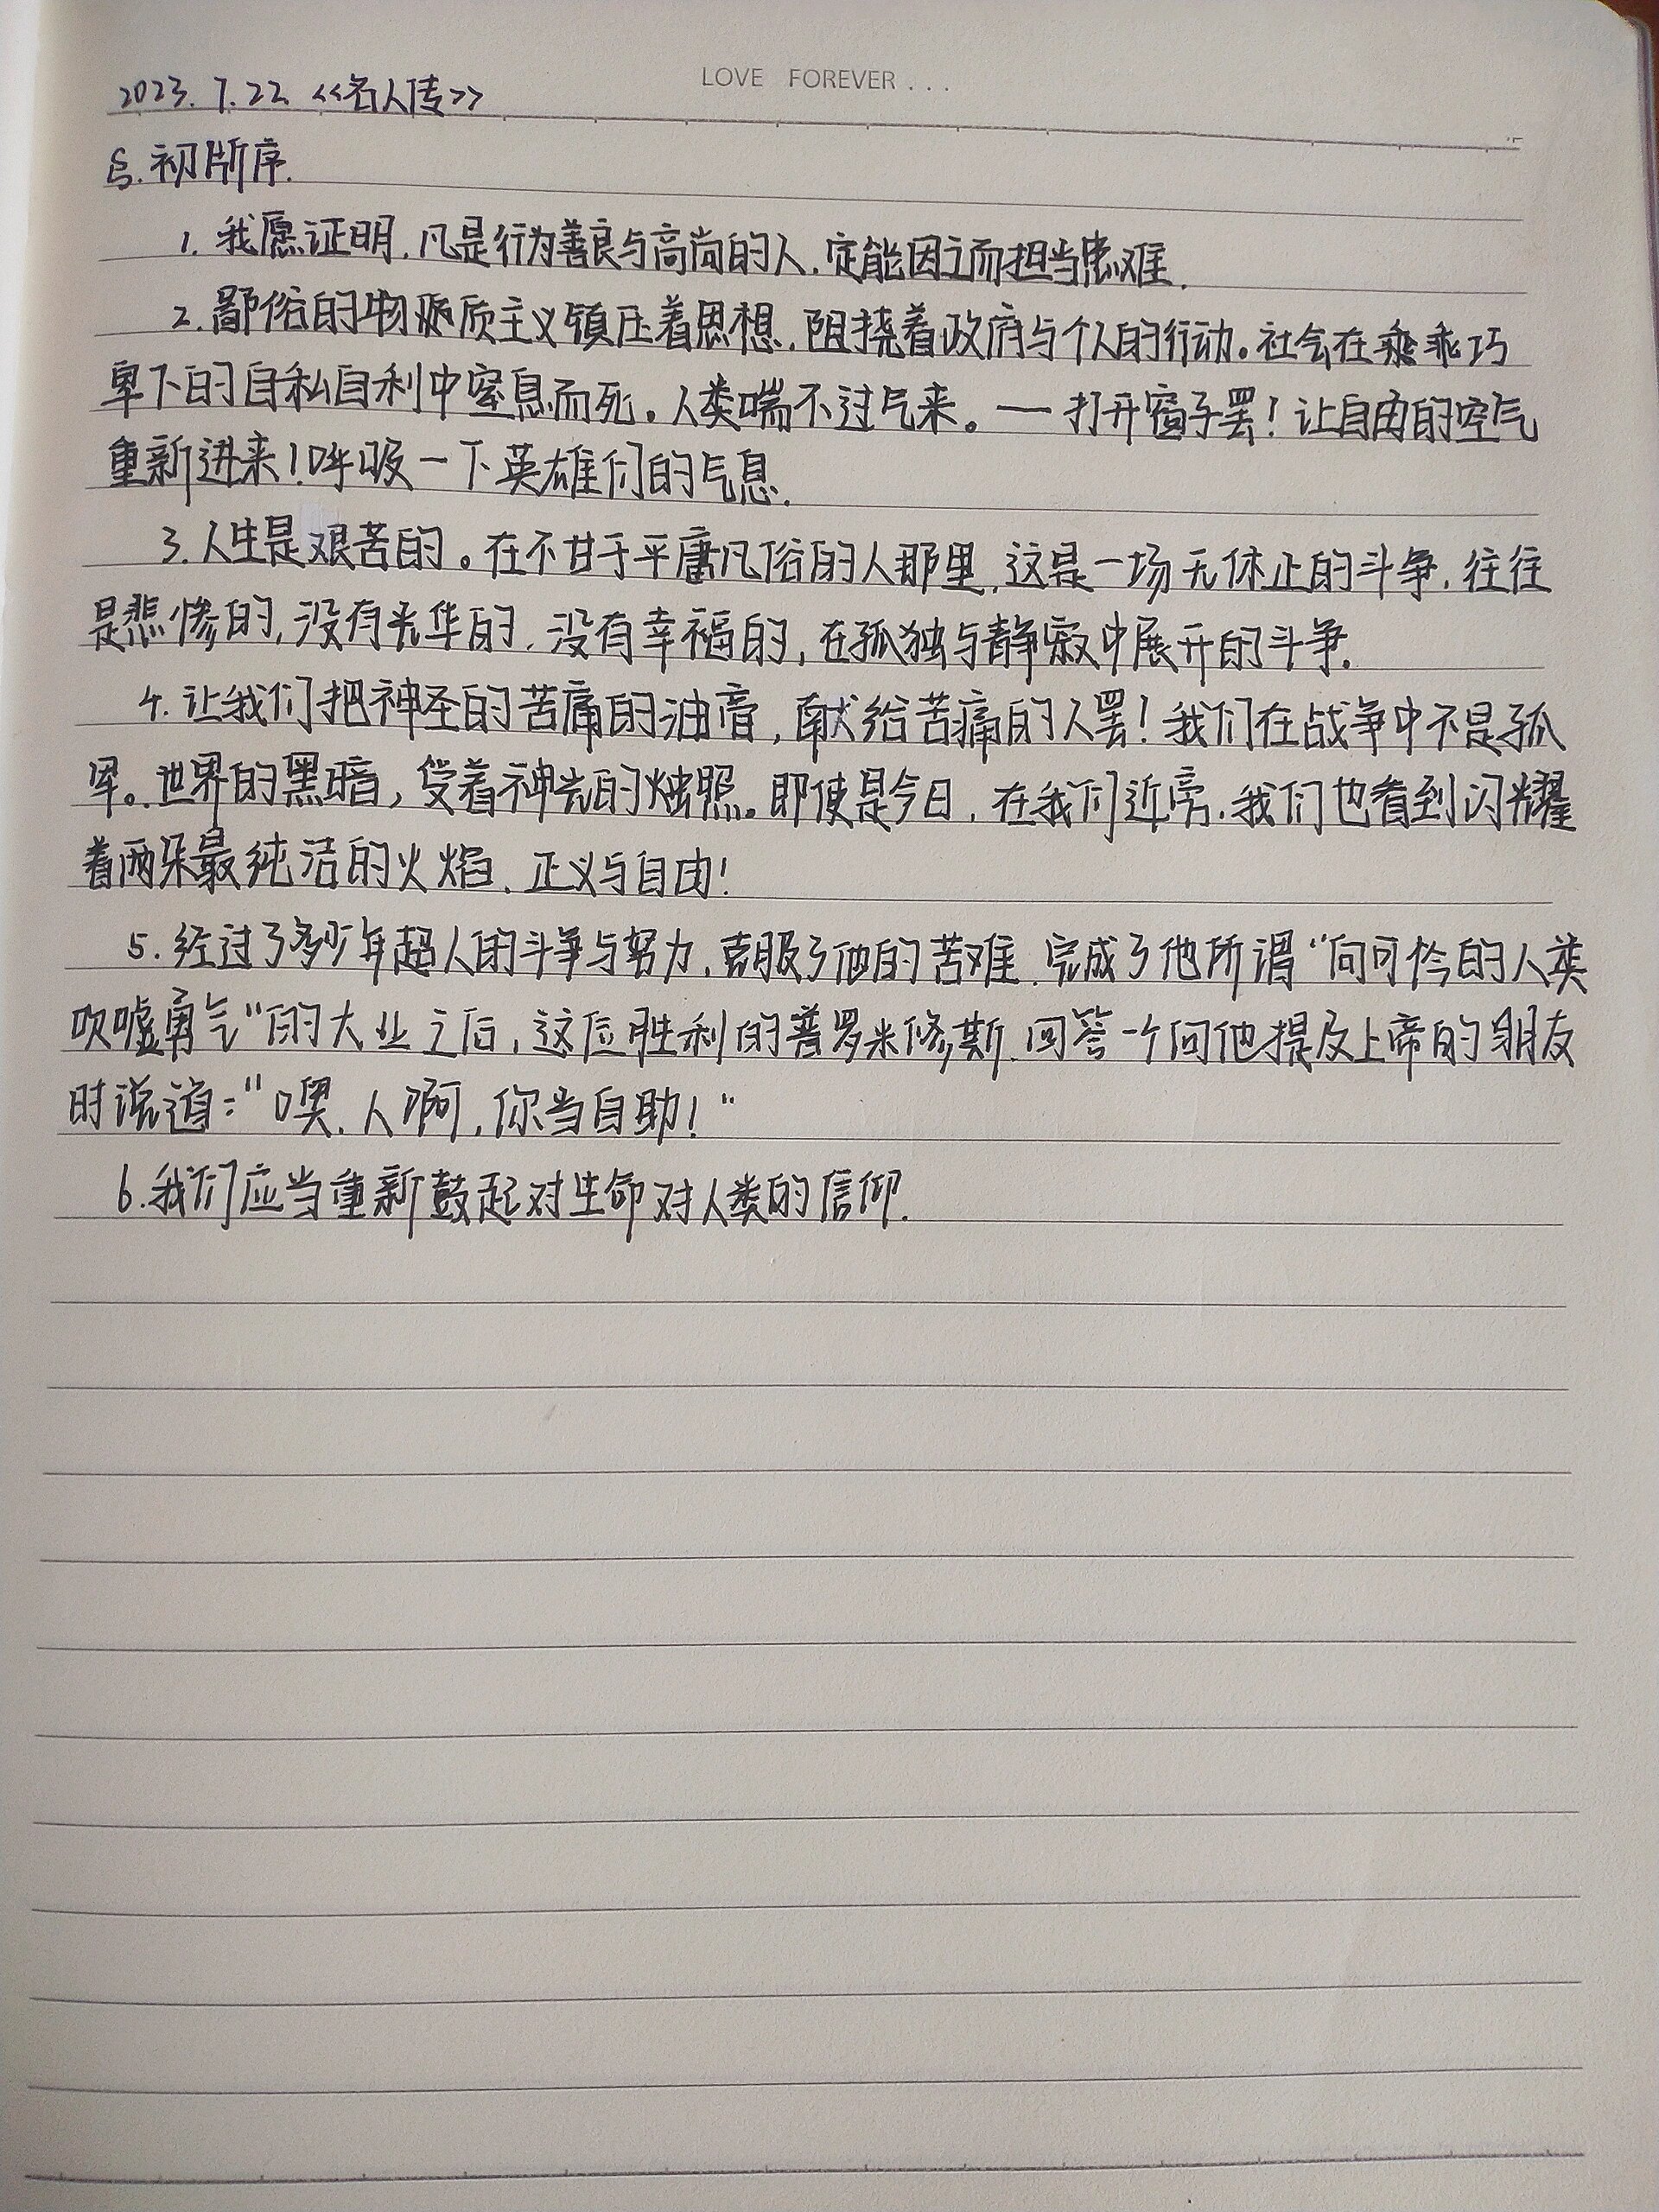 LOVE FOREVER . . .
2023. 7. 22 <<名人传>>
§. 初版序.
1. 我愿证明,凡是行为善良与高尚的人,定能因之而担当患难.
2. 鄙俗的物质主义镇压着思想,阻挠着政府与个人的行动。社会在乖乖巧
卑下的自私自利中窒息而死。人类喘不过气来。— 打开窗子罢!让自由的空气
重新进来!呼吸一下英雄们的气息.
3. 人生是艰苦的。在不甘于平庸凡俗的人那里,这是一场无休止的斗争,往往
是悲惨的,没有光华的,没有幸福的,在孤独与静寂中展开的斗争.
4. 让我们把神圣的苦痛的油膏,献给苦痛的人罢!我们在战争中不是孤
军。世界的黑暗,受着神光的烛照。即使是今日,在我们近旁,我们也看到闪耀
着两朵最纯洁的火焰,正义与自由!
5. 经过了多少年超人的斗争与努力,克服了他的苦难,完成了他所谓"向可怜的人类
吹嘘勇气"的大业之后,这位胜利的普罗米修斯,回答一个向他提及上帝的朋友
时说道:"噢,人啊,你当自助!"
6. 我们应当重新鼓起对生命对人类的信仰.